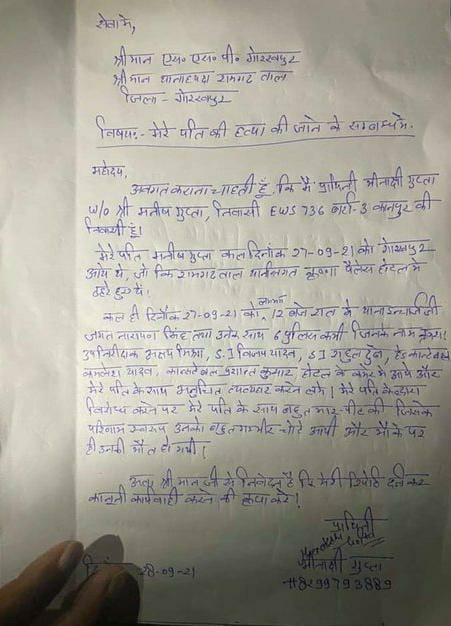 सेवा में,
श्रीमान एस० एस० पी० गोरखपुर
श्रीमान थानाध्यक्ष रामगढ़ ताल
जिला - गोरखपुर
विषय:- मेरे पति की हत्या की जाने के सम्बन्ध में.
महोदय,
अवगत कराना चाहती हूँ कि मैं प्रार्थिनी मीनाक्षी गुप्ता
W/o श्री मनीष गुप्ता, निवासी EWS 736 बर्रा-3 कानपुर की
निवासी हूँ।
मेरे पति मनीष गुप्ता कल दिनांक 27-09-21 को गोरखपुर
आये थे, जो कि रामगढ़ ताल थानान्तर्गत कृष्णा पैलेस होटल में
ठहरे हुए थे.
कल ही दिनाँक 27-09-21 को, 12 बजे रात के थाना इन्चार्ज श्री
जगत नारायण सिंह तथा उनके साथ 6 पुलिस कर्मी जिनके नाम क्रमशः
उपनिरीक्षक अक्षय मिश्रा, S.I विजय यादव, S I राहुल दुबे, हेड कान्स्टेबल
कमलेश यादव, कान्स्टेबल प्रशान्त कुमार होटल के कमरे में आये और
मेरे पति के साथ अनुचित व्यवहार करने लगे। मेरे पति के द्वारा
विरोध करने पर मेरे पति के साथ बहुत मार-पीट की जिसके
परिणाम स्वरूप उनको बहुत गम्भीर चोटे आयी और मौके पर
ही उनकी मौत हो गयी।
अतः श्रीमान जी से निवेदन है कि मेरी रिपोर्ट दर्ज कर
कानूनी कार्यवाही करने की कृपा करें।
प्रार्थिनी
मीनाक्षी गुप्ता
28-09-21
#8299793889